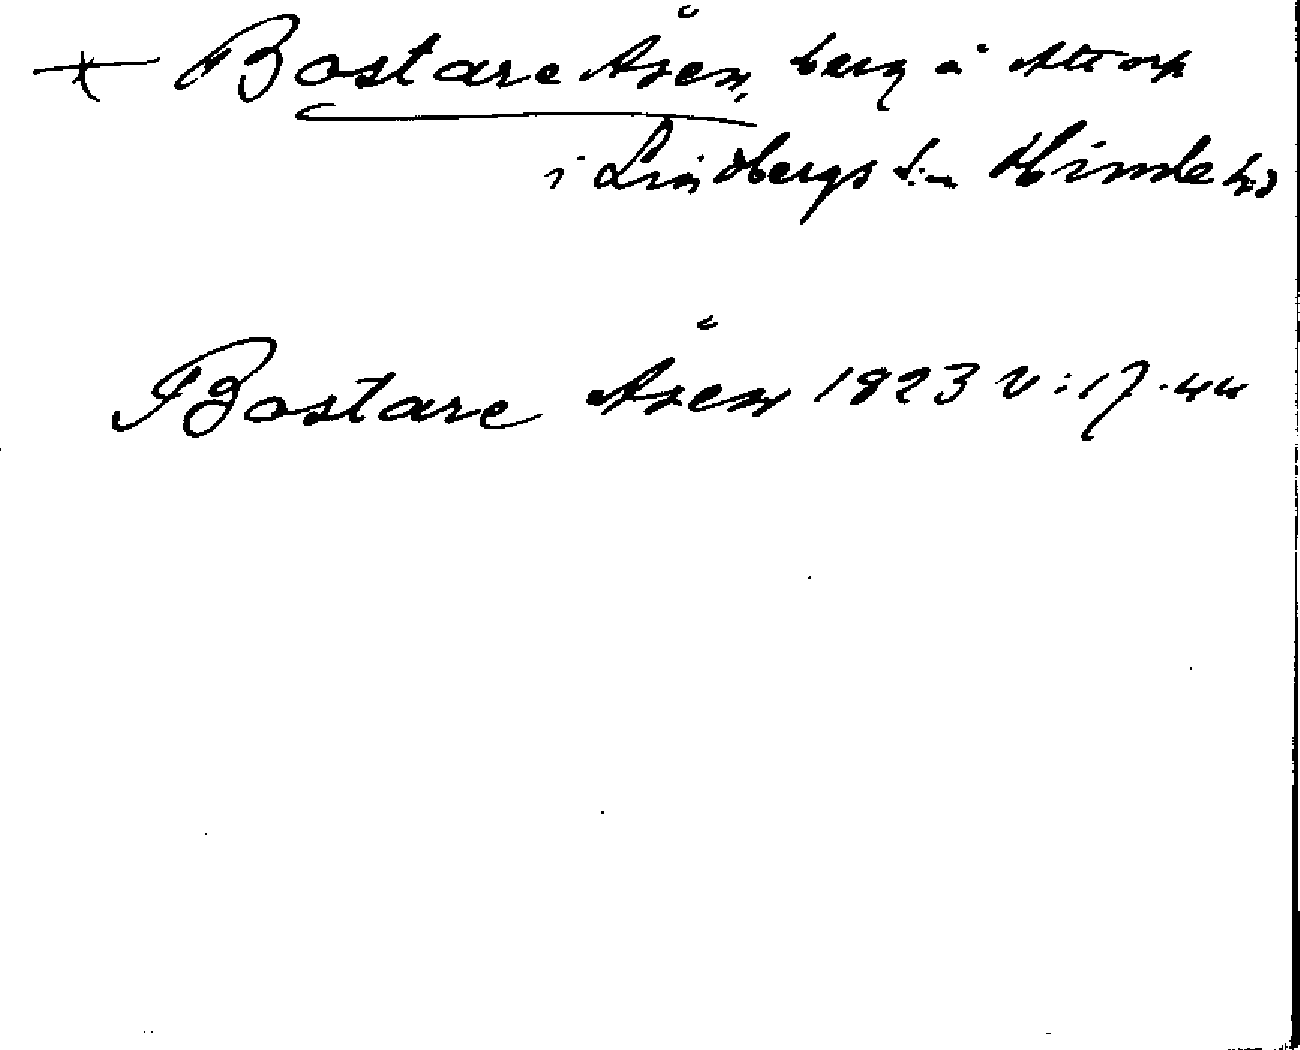 Bostare Åsen, berg å Attorp
i Lindbergs sn Himle hd
Bostare Åsen 1823 V:17.44